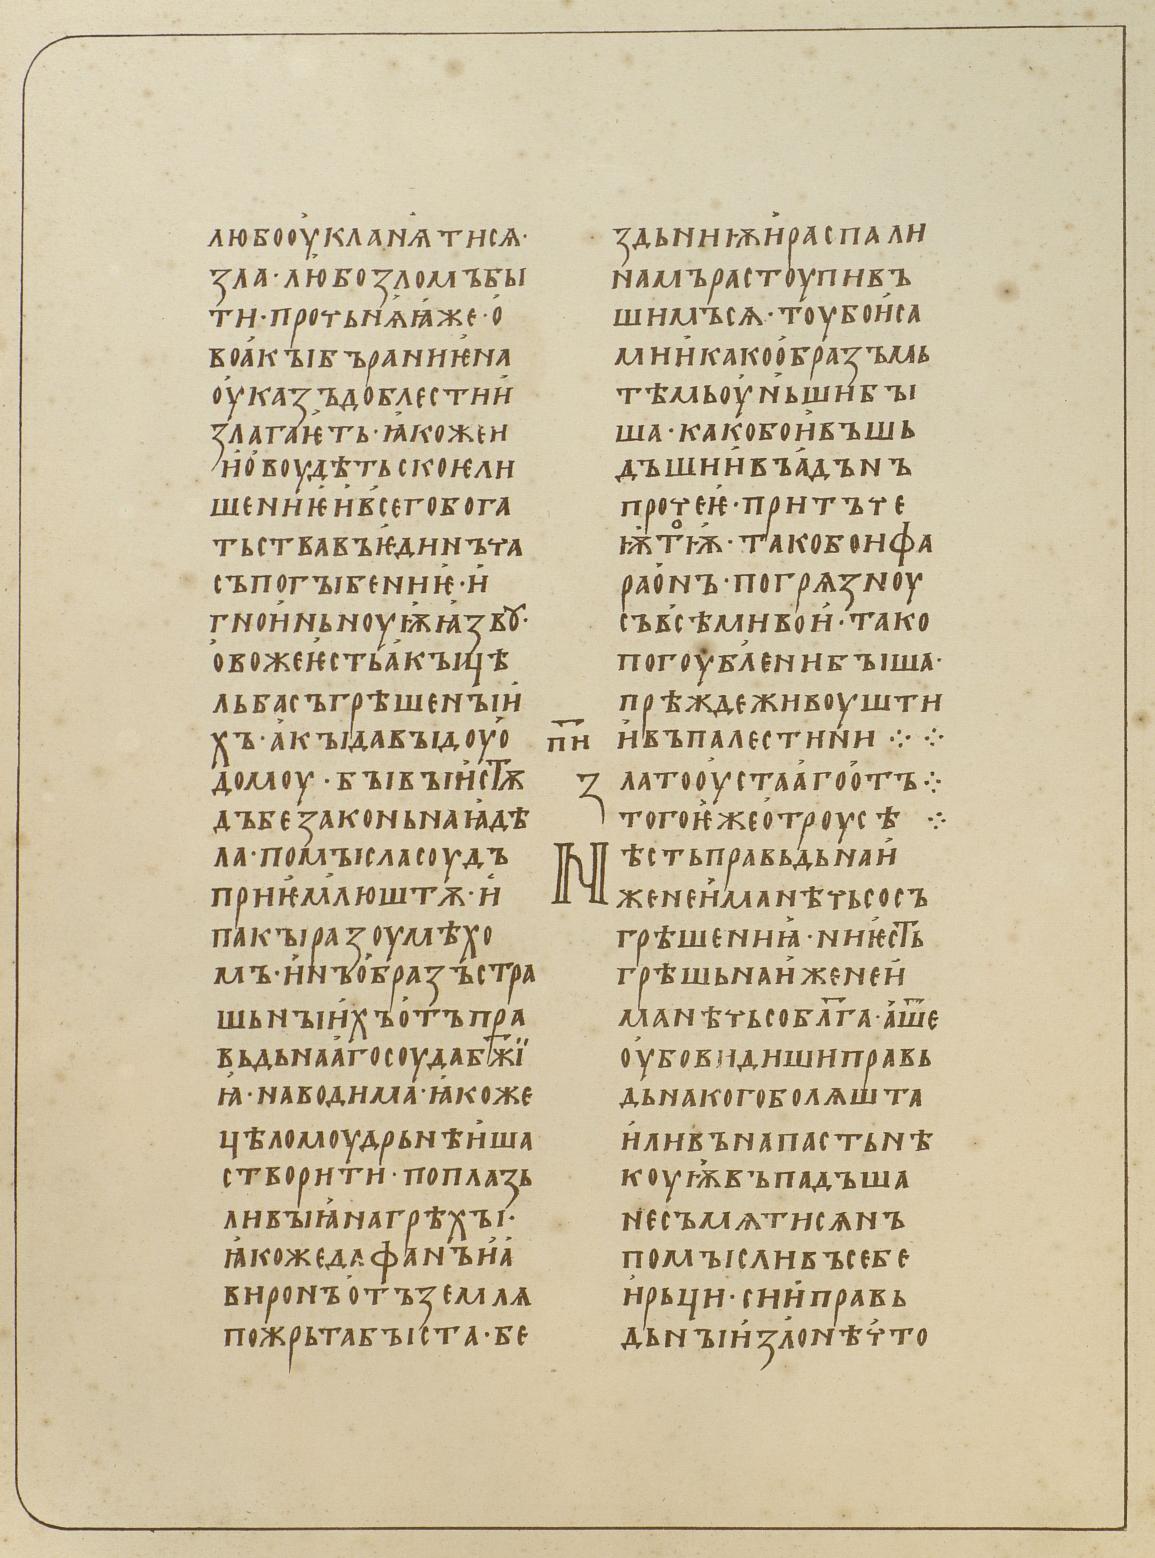 любооукланꙗтисѧ·
зла·любозломъбы
ти·протьнѧꙗже·о
воакъібъранѥна
оуказъдоблестии
злагаѥть·ꙗкожеи
иовоудѣтьскоѥли
шениѥивсегобога
тьствавъѥдинъча
съпогъібениѥ·и
гноиньноуѭꙗзвꙋ·
овожеѥстьакъіцѣ
льбасъгрѣшенъіи
хъ·акъідавъідоуо
домоу·бъівъіистѫ
дъбезаконьнаꙗдѣ
ла·помъісласоудъ
приѥмлюштѫ·и
пакъіразоумѣхо
мъ·инъобразъстра
шьнъіихъотъпра
вьдьнаагосоудабжї
ꙗ·наводима·ꙗкоже
цѣломоудрьнѣиша
створити·поплазь
ливъіꙗнагрѣхъі·
ꙗкожедафанъиа
виронъотъземлѧ
пожрьтабъіста·бе
здьниѭираспали
намърастоупивъ
шимъсѧ·тоубоиса
миикакообразъмь
тѣмьоуньшибъі
ша·какобоивъшь
дъшиивъадънъ
протеѥ·притъче
ѭтѭ·такобоифа
раонъ·погрѧзноу
съвсѣмивои·тако
погоубленибъіша·
прѣждеживоушти
ивъпалестинии ⁘ ⁘
пи
златооустааготъ⁘
тогоѥжеотроусѣ ⁘
Нѣстьправьдьнаи
женеиманѣтьсосъ
грѣшениꙗ·ниѥсть
грѣшьнаиженеи
манѣтьсоблга·аще
оубовидишиправь
дьнакогоболѧшта
иливънапастьнѣ
коуѭвъпадъша
несъмѧтисѧнъ
помъісливъсебе
ирьци·сииправь
дьнъіизлонѣчто